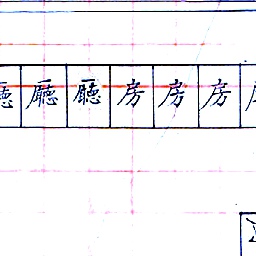 廳廳廳房房房